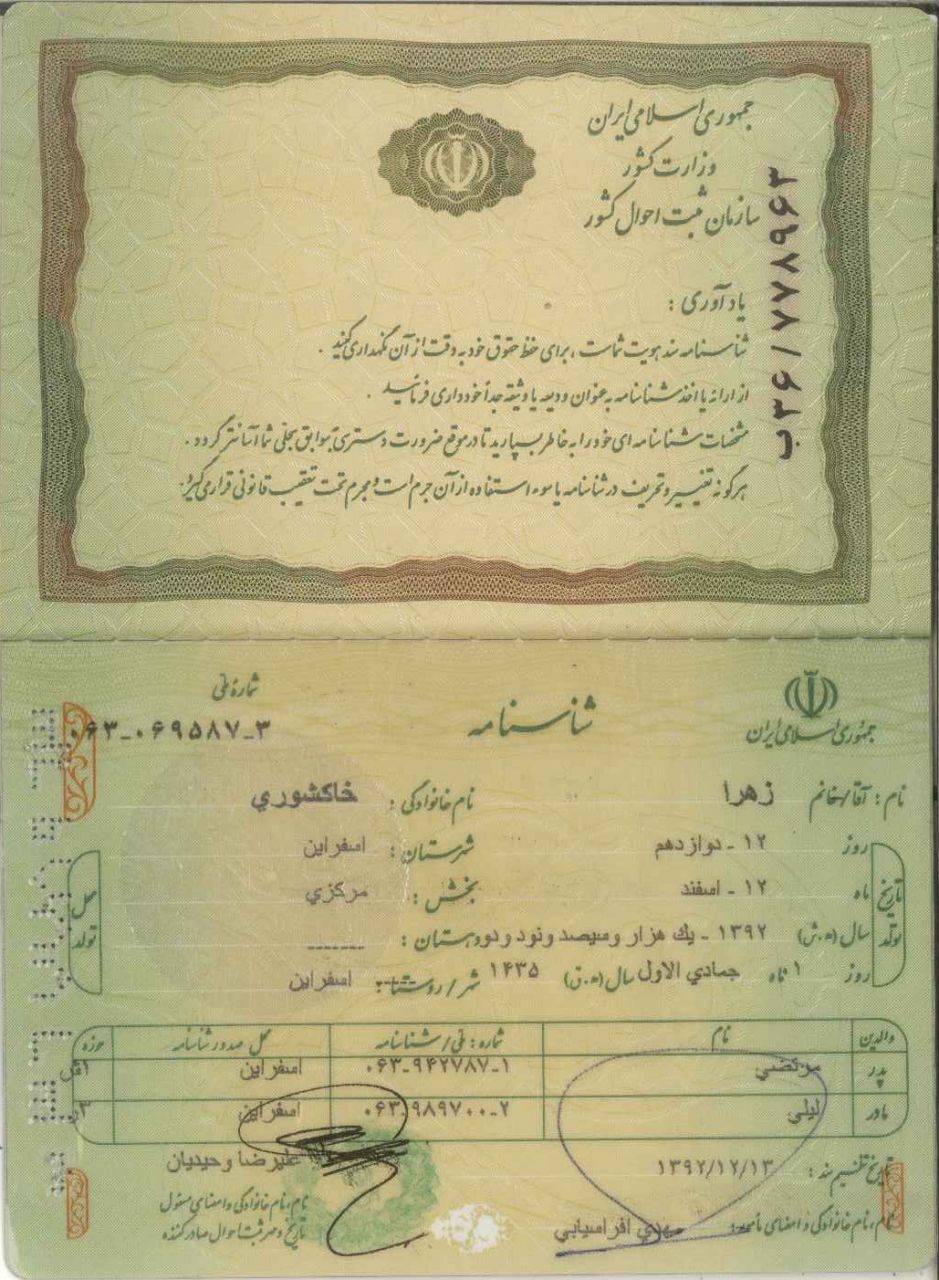 جمهوری اسلامی ایران
وزارت کشور
سازمان ثبت احوال کشور
ب۳۶/۷۷۸۹۶۳
یادآوری :
شناسنامه سند هویت شماست ، برای حفظ حقوق خود به دقت از آن نگهداری کنید .
از ارائه یا اخذ شناسنامه به عنوان ودیعه یا وثیقه جداً خودداری فرمائید .
مشخصات شناسنامه ای خود را به خاطر بسپارید تا در موقع ضرورت دسترسی به سوابق سجلی شما آسانتر گردد .
هرگونه تغییر و تحریف در شناسنامه یا سوء استفاده از آن جرم است و مجرم تحت تعقیب قانونی قرار می گیرد.
جمهوری اسلامی ایران
شناسنامه
شماره ملی
۰۶۳-۰۶۹۵۸۷-۳
نام : آقا/خانم زهرا نام خانوادگی : خاکشوري
تاریخ تولد
روز ۱۲ - دوازدهم شهرستان : اسفراین
ماه ۱۲ - اسفند بخش : مرکزي
سال (ه.ش) ۱۳۹۲ - یك هزار وسیصد ونود ودو دهستان : ------
روز ۱ ماه جمادي الاول سال (ه.ق) ۱۴۳۵ شهر/روستا : اسفراین
محل تولد
والدین نام شماره : ملی/شناسنامه محل صدور شناسنامه حوزه
پدر مرتضي ۰۶۳-۹۴۲۷۸۷-۱ اسفراین ۱ش
مادر لیلی ۰۶۳-۹۸۹۷۰۰-۲ اسفراین
تاریخ تنظیم سند : ۱۳۹۲/۱۲/۱۳ علیرضا وحیدیان
نام، نام خانوادگی و امضای مأمور : مهدي افراسیابي
نام، نام خانوادگی و امضای مسئول
تاریخ و مهر ثبت احوال صادر کننده